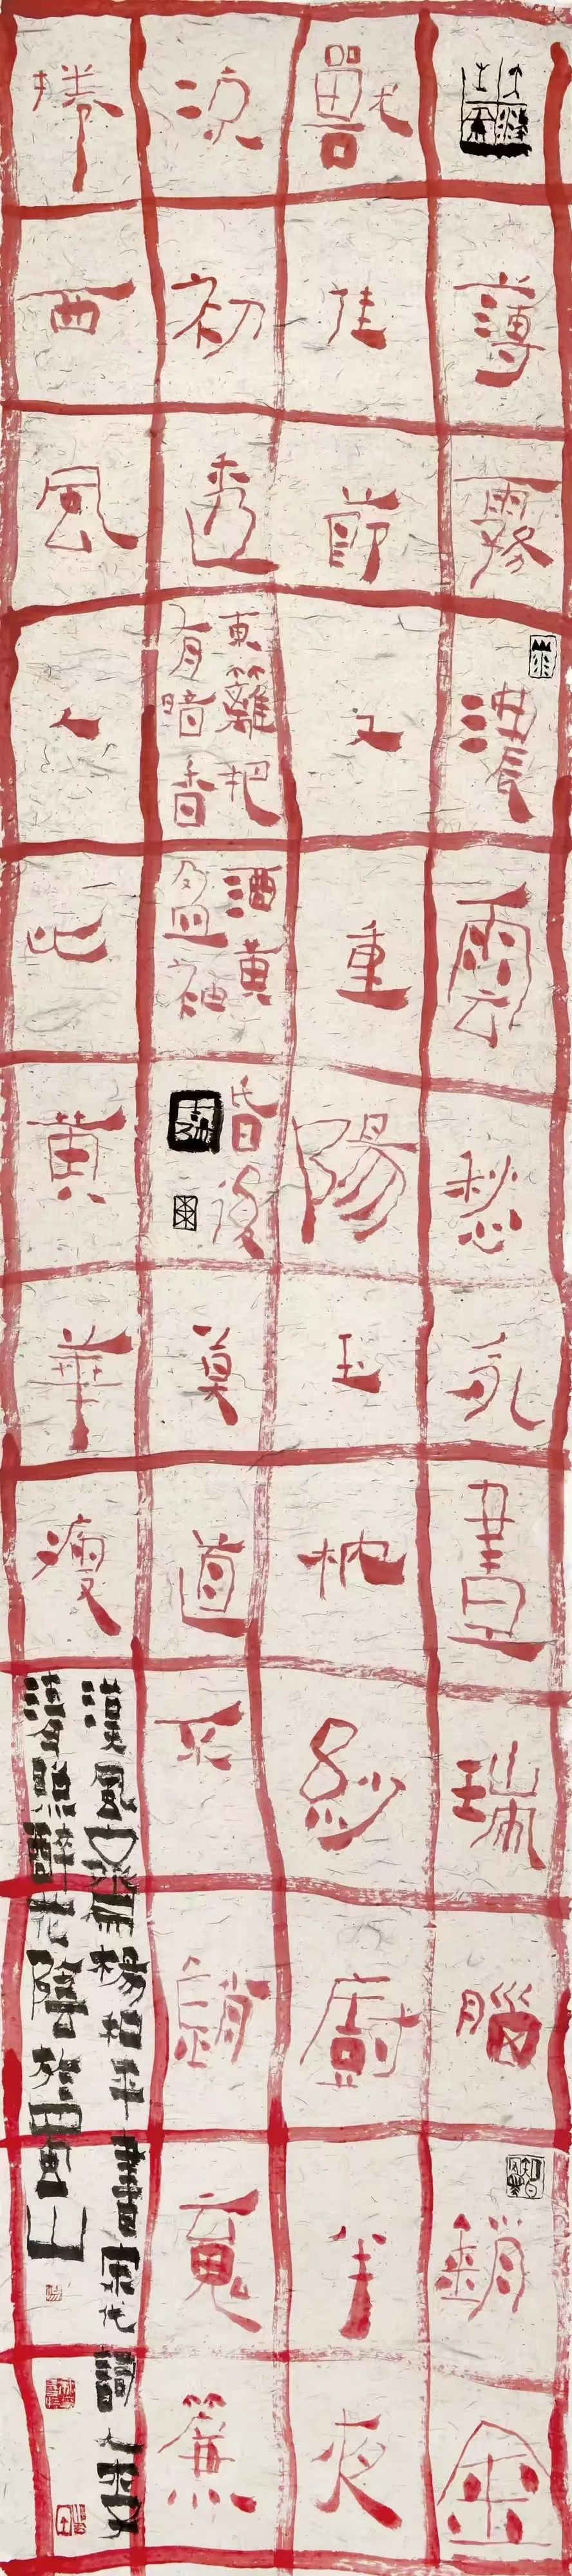 薄霧濃雲愁永晝瑞腦銷金
獸佳節又重陽玉枕紗廚半夜
涼初透
東籬把酒黃昏後
有暗香盈袖
莫道不銷魂簾
捲西風人比黃華瘦
漢風楊平書宋代詞人李
清照醉花陰於山